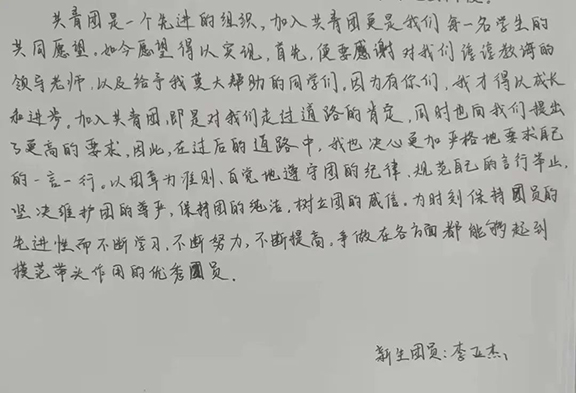 共青团是一个先进的组织，加入共青团更是我们每一名学生的
共同愿望。如今愿望得以实现，首先，便要感谢对我们谆谆教诲的
领导老师，以及给予我莫大帮助的同学们。因为有你们，我才得以成长
和进步。加入共青团，即是对我们走过道路的肯定，同时也向我们提出
了更高的要求，因此，在过后的道路中，我也决心更加严格地要求自己
的一言一行。以团章为准则、自觉地遵守团的纪律、规范自己的言行举止，
坚决维护团的尊严，保持团的纯洁，树立团的威信。为时刻保持团员的
先进性而不断学习，不断努力，不断提高。争做在各方面都能够起到
模范带头作用的优秀团员。
新生团员：李亚杰